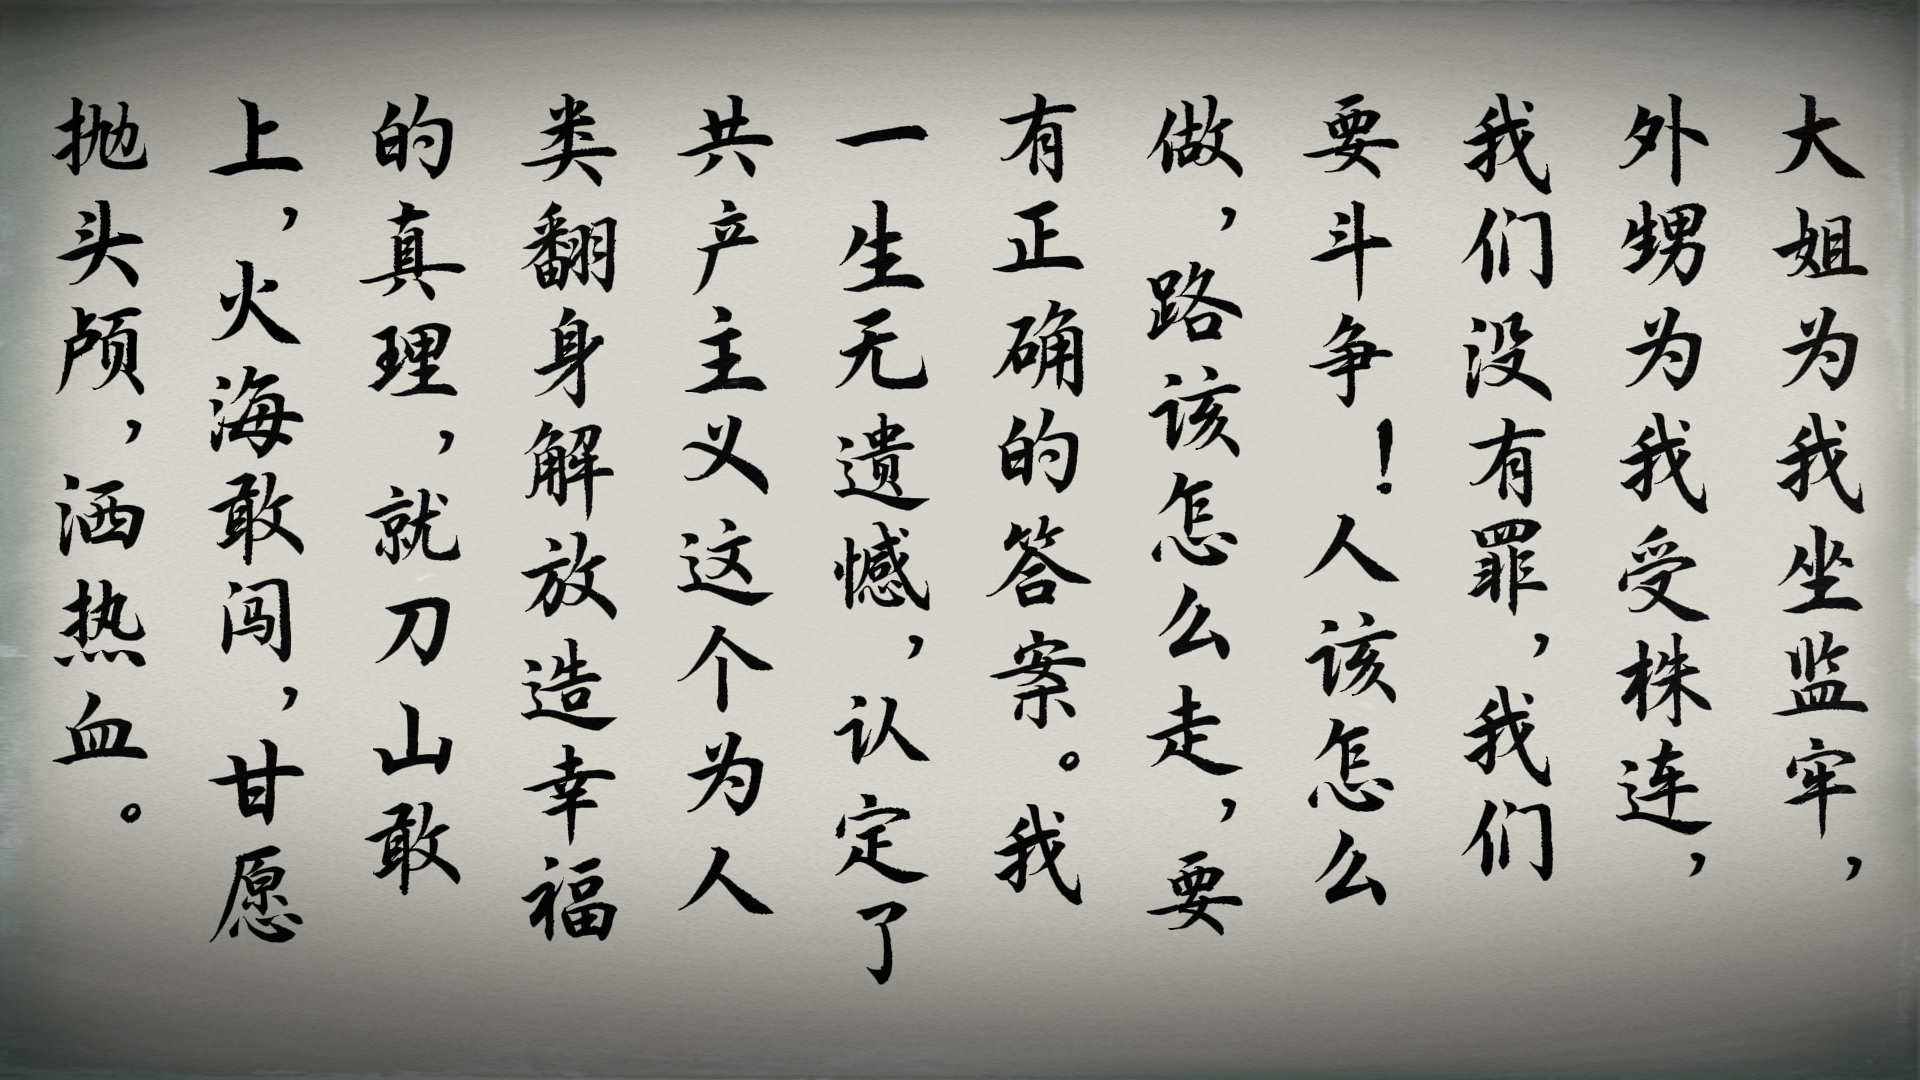 大姐为我坐监牢，
外甥为我受株连，
我们没有罪，我们
要斗争！人该怎么
做，路该怎么走，要
有正确的答案。我
一生无遗憾，认定了
共产主义这个为人
类翻身解放造幸福
的真理，就刀山敢
上，火海敢闯，甘愿
抛头颅，洒热血。